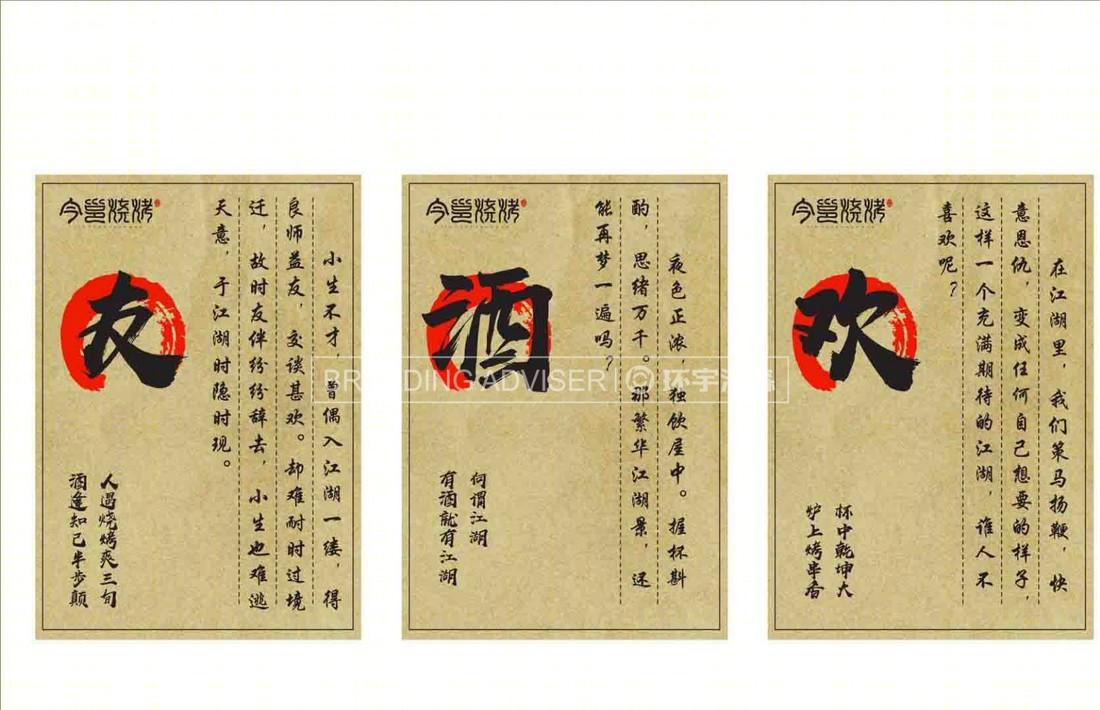 今邕烧烤
友
小生不才，曾偶入江湖一缕，得
良师益友，交谈甚欢。却难耐时过境
迁，故时友伴纷纷辞去，小生也难逃
天意，于江湖时隐时现。
人遇烧烤爽三旬
酒逢知己半步颠
今邕烧烤
酒
夜色正浓，独饮屋中。握杯斟
酌，思绪万千。那繁华江湖景，还
能再梦一遍吗？
何谓江湖
有酒就有江湖
今邕烧烤
欢
在江湖里，我们策马扬鞭，快
意恩仇，变成任何自己想要的样子，
这样一个充满期待的江湖，谁人不
喜欢呢？
杯中乾坤大
炉上烤串香
BRANDING ADVISER
环宇